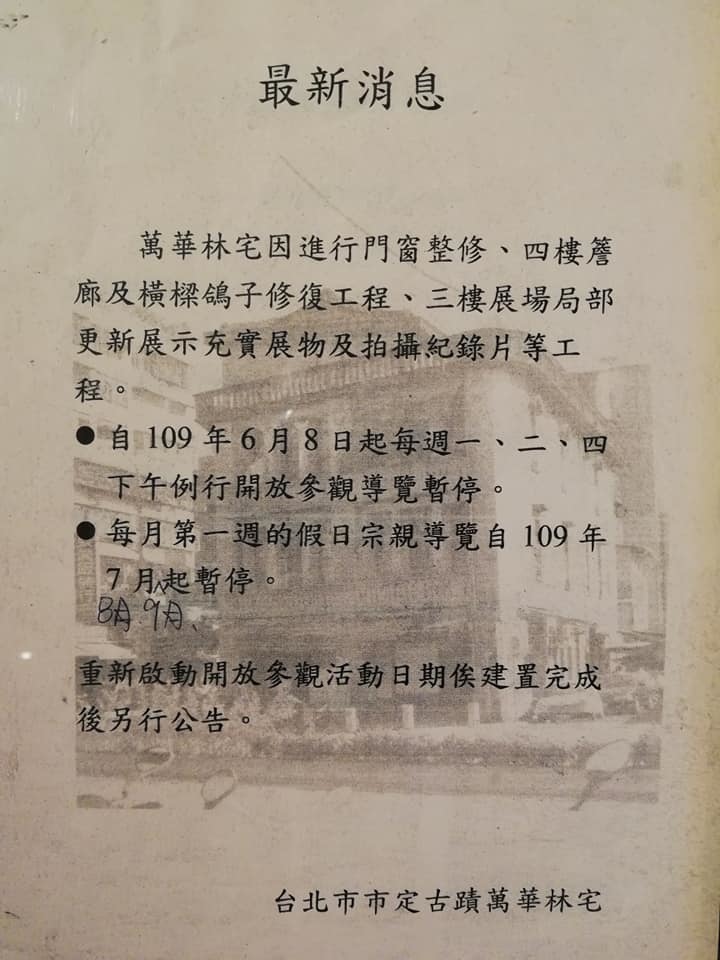 最新消息
萬華林宅因進行門窗整修、四樓簷
廊及橫樑鴿子修復工程、三樓展場局部
更新展示充實展物及拍攝紀錄片等工
程。
●自 109 年 6 月 8 日起每週一、二、四
下午例行開放參觀導覽暫停。
●每月第一週的假日宗親導覽自 109 年
7 月^起暫停。
8月.9月、
重新啟動開放參觀活動日期俟建置完成
後另行公告。
台北市市定古蹟萬華林宅